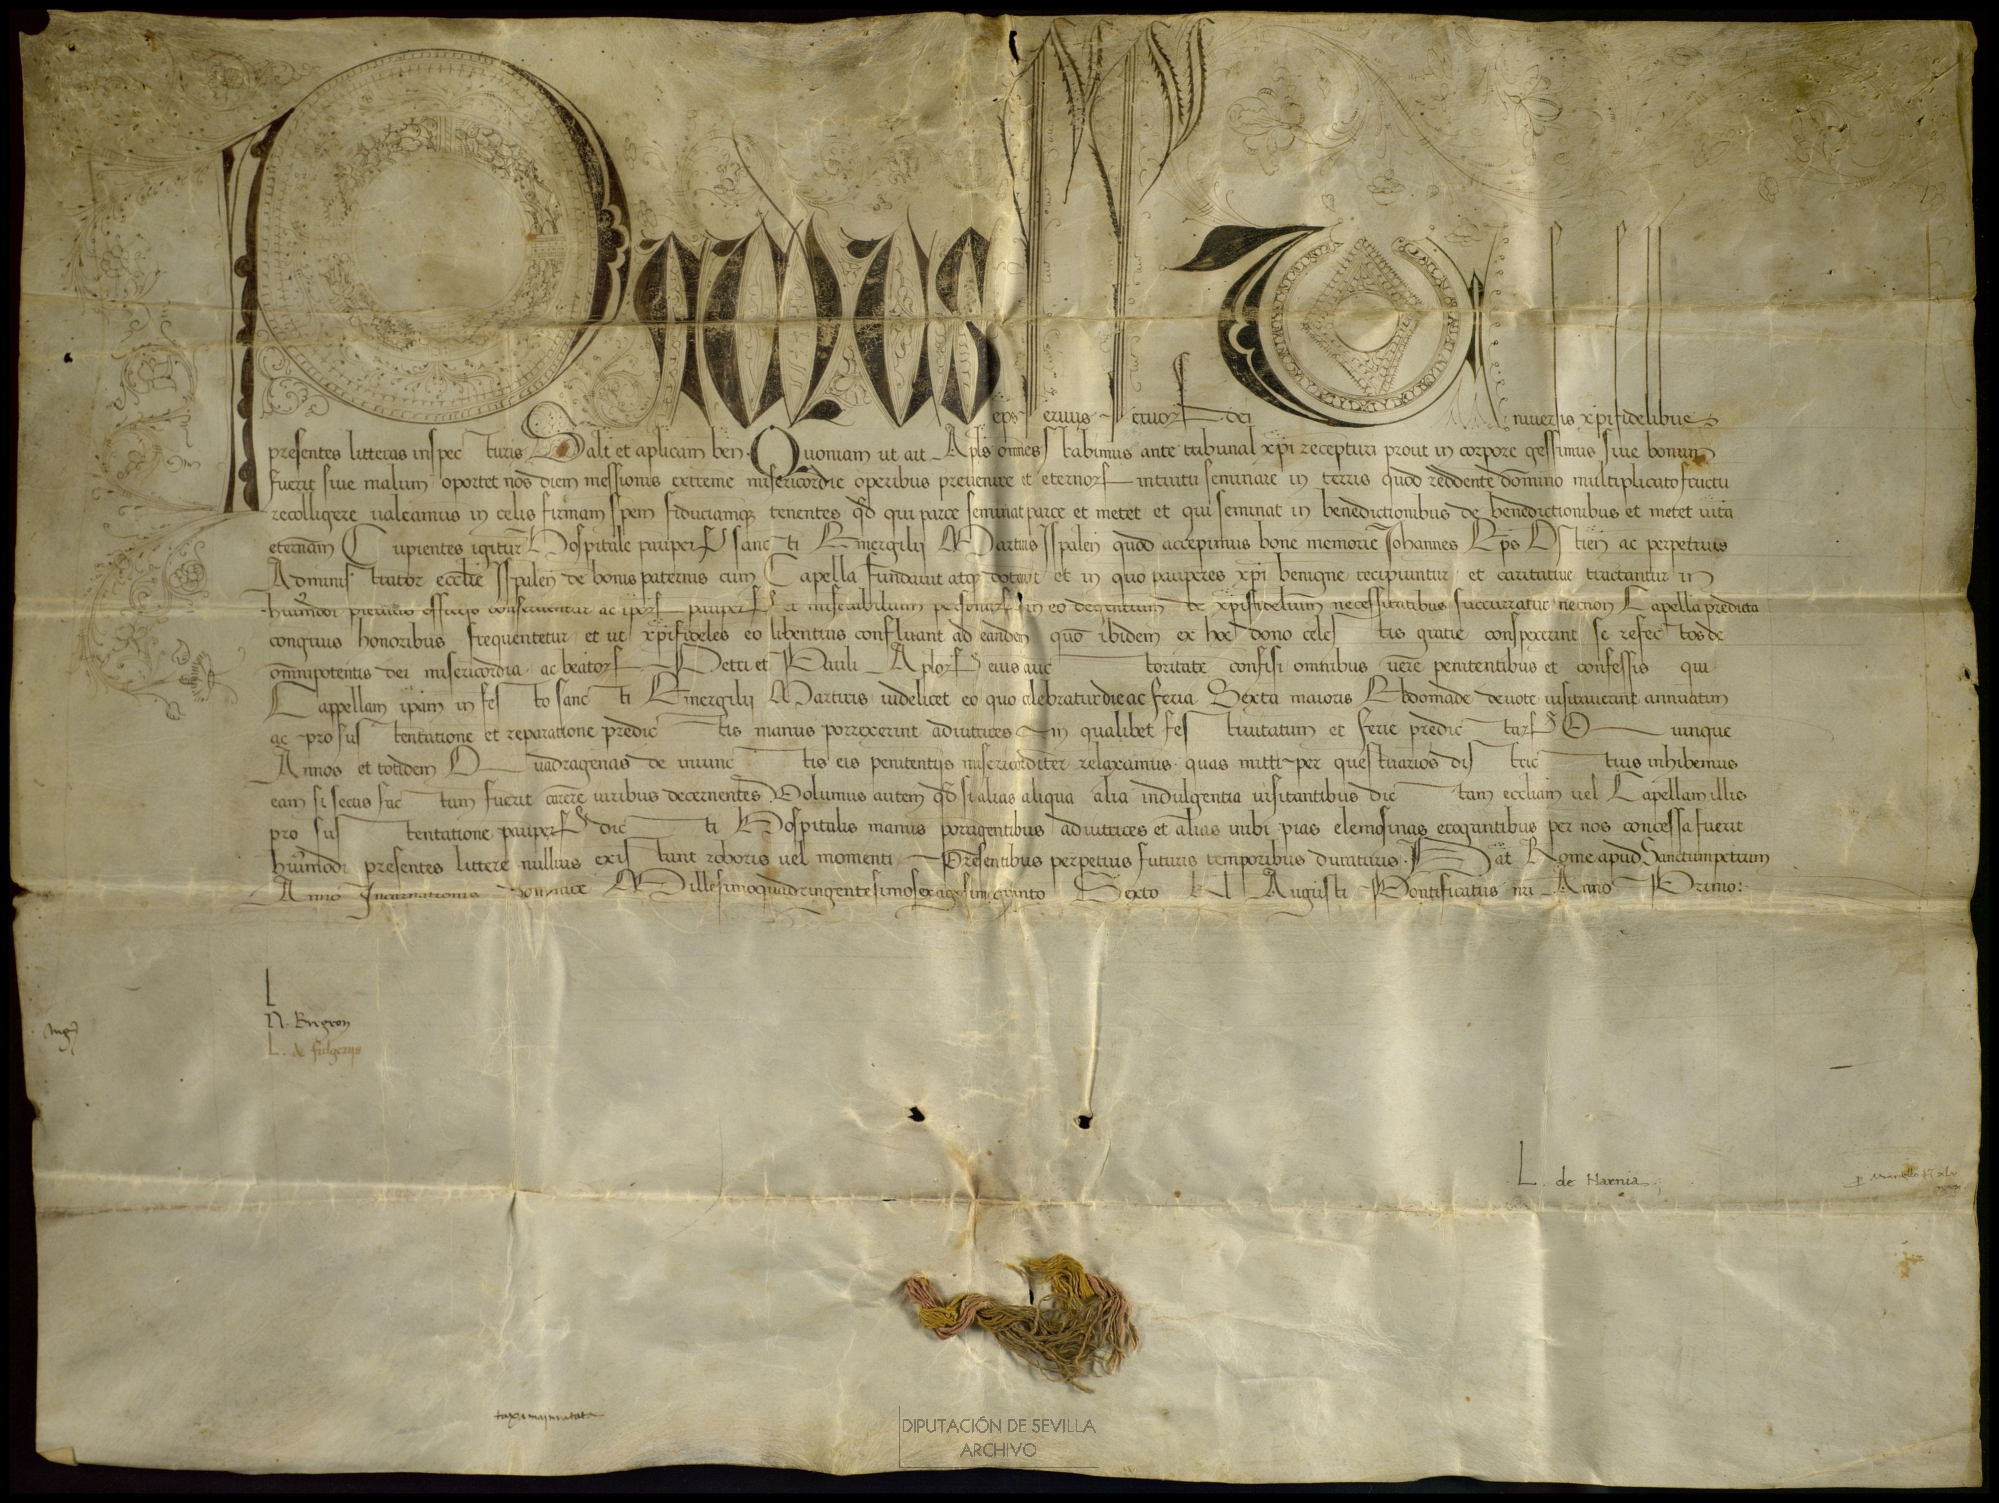 Paulus eps servus servorꝫ dei Universis xpifidelibus
presentes litteras inspecturis Salt et aplicam ben. Quoniam ut ait Apls omnes stabimus ante tribunal xpi recepturi prout in corpore gessimus sive bonum
fuerit sive malum oportet nos diem messionis extreme misericordie operibus prevenire et eternorꝫ intuitu seminare in terris quod reddente domino multiplicato fructu
recolligere valeamus in celis firmam spem fiduciamqꝫ tenentes qd qui parce seminat parce et metet et qui seminat in benedictionibus de benedictionibus et metet vitā
eternam Cupientes igitur Hospitale pauperꝫ sancti Emergilij Martiris Ispalen quod accepimus bone memorie Johannes Eps Ostien ac perpetuus
Administrator ecclie Ispalen de bonis paternis cum Capella fundavit atqꝫ dotavit et in quo pauperes xpi benigne recipiuntur et caritative tractantur in
huiꝰmodi officio conserventur ac iporꝫ pauperꝫ et miserabilium personarꝫ in eo degentium de xpifidelium necessitatibus succurratur necnon Capella predicta
congruis honoribus frequentetur et ut xpifideles eo libentius confluant ad eandem quo ibidem ex hoc dono celestis gratie conspexerint se refectos de
omnipotentis dei misericordia ac beatorꝫ Petri et Pauli Aplorꝫ eius auctoritate confisi omnibus vere penitentibus et confessis qui
Cappellam ipam in festo sancti Emergilij Martiris videlicet eo quo celebratur die ac feria Sexta maioris Ebdomade devote visitaverint annuatim
ac pro sustentatione et reparatione predictis manus porrexerint adiutrices in qualibet festivitatum et ferie predictarꝫ Quinque
Annos et totidem Quadragenas de iniunctis eis penitentijs misericorditer relaxamus quas mitti per questuarios districtius inhibemus
eam si secus factum fuerit carere viribus decernentes Volumus autem qd si alias aliqua alia indulgentia visitantibus dictam eccliam vel Capellam illis
pro sustentatione pauperꝫ dicti Hospitalis manus porrigentibus adiutrices et alias inibi pias elemosinas erogantibus per nos concessa fuerit
huiꝰmodi presentes littere nullius existant roboris vel momenti Presentibus perpetuis futuris temporibus duraturis. Dat Rome apud Sanctumpetrum
Anno Incarnationis Dominice Millesimoquadringentesimosexagesimoquinto Sexto kl Augusti Pontificatus nri Anno Primo:
L
N. Bregeon
L. de fulgerijs
L. de Harenis
DIPUTACIÓN DE SEVILLA
ARCHIVO